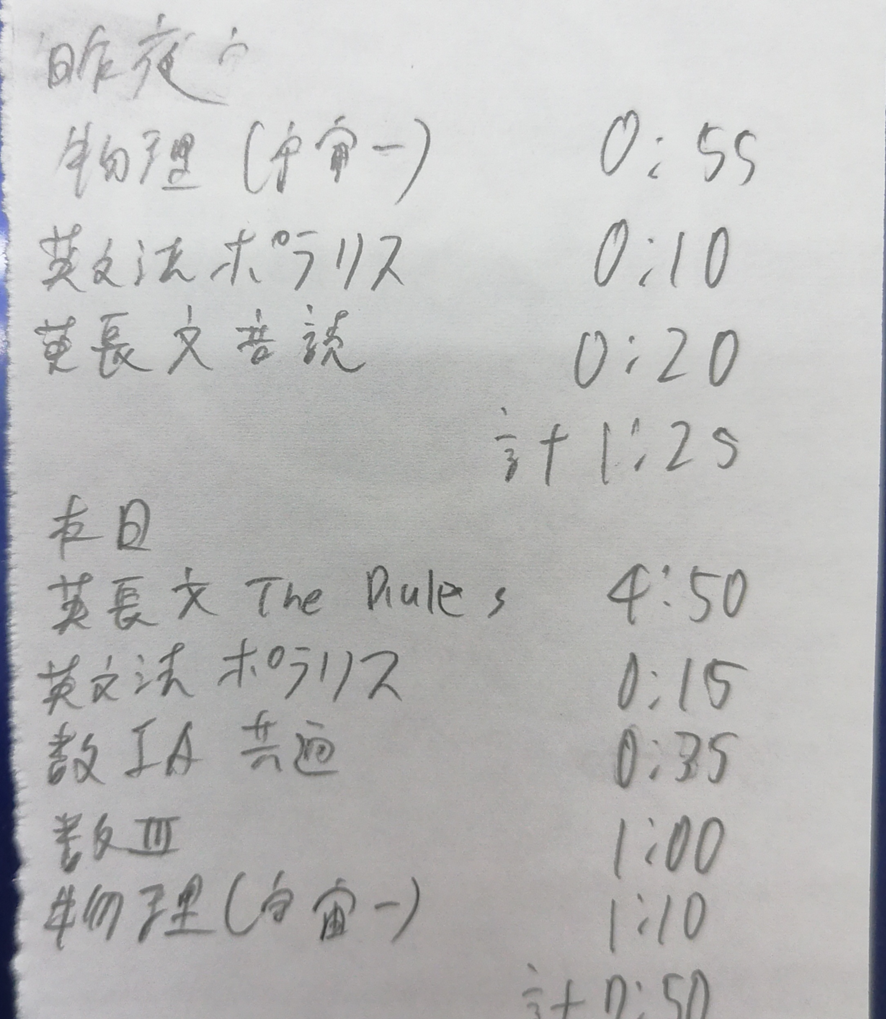 昨夜
物理(宇宙一) 0:55
英文法ポラリス 0:10
英長文音読 0:20
計 1:25
本日
英長文 The Rules 4:50
英文法ポラリス 0:15
数IA 共通 0:35
数III 1:00
物理(宇宙一) 1:10
計 7:50